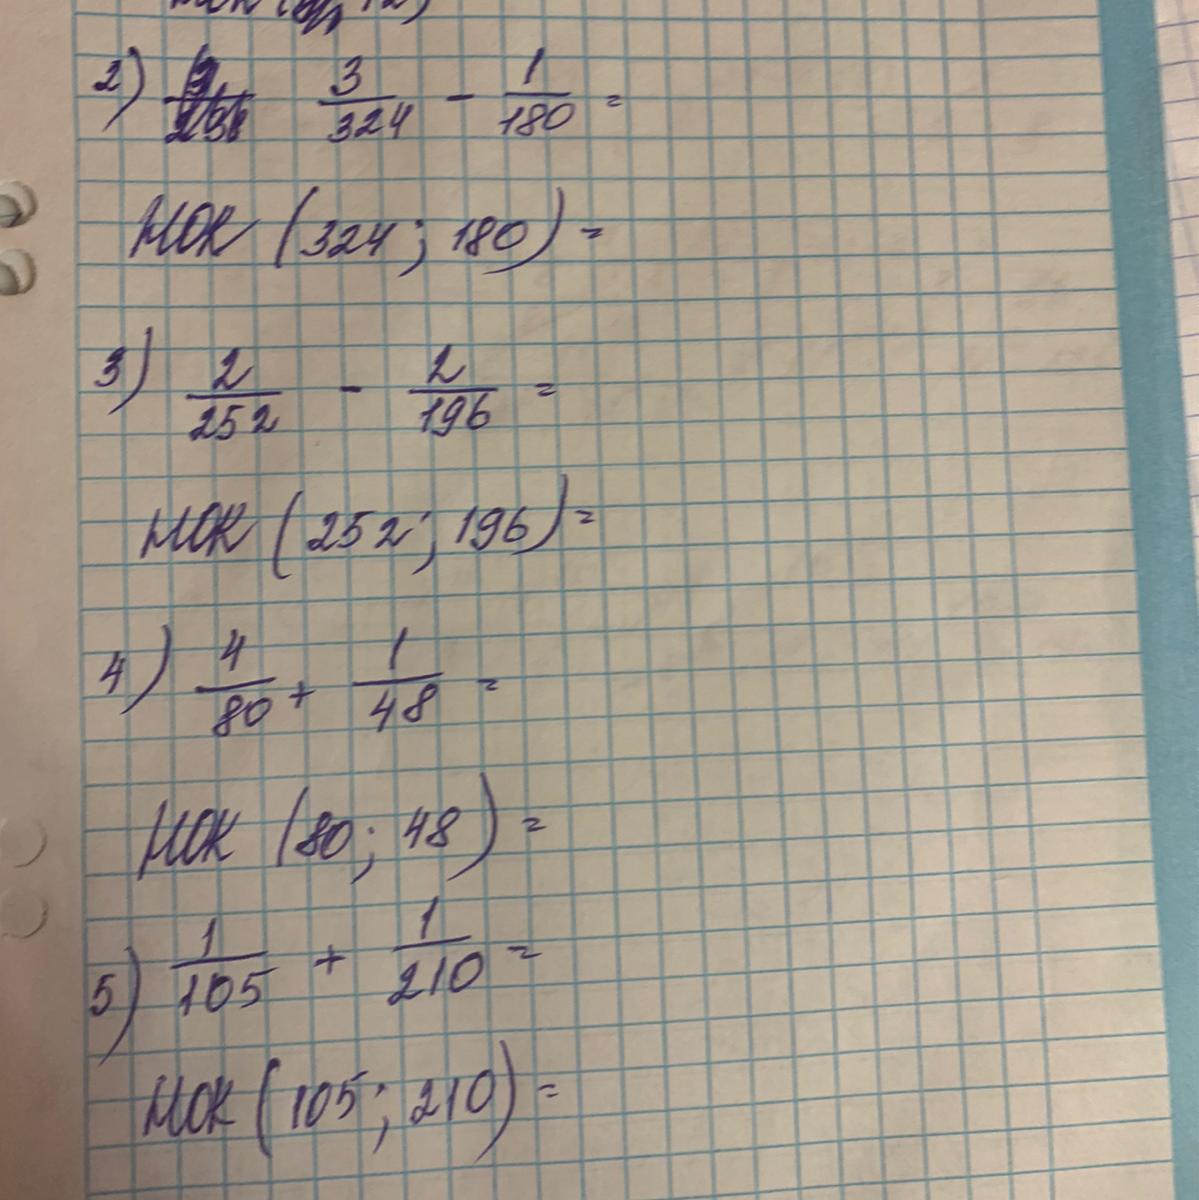 2) 3/324 - 1/180 =
НОК (324; 180) =
3) 2/252 - 2/196 =
НОК (252; 196) =
4) 4/80 + 1/48 =
НОК (80; 48) =
5) 1/105 + 1/210 =
НОК (105; 210) =